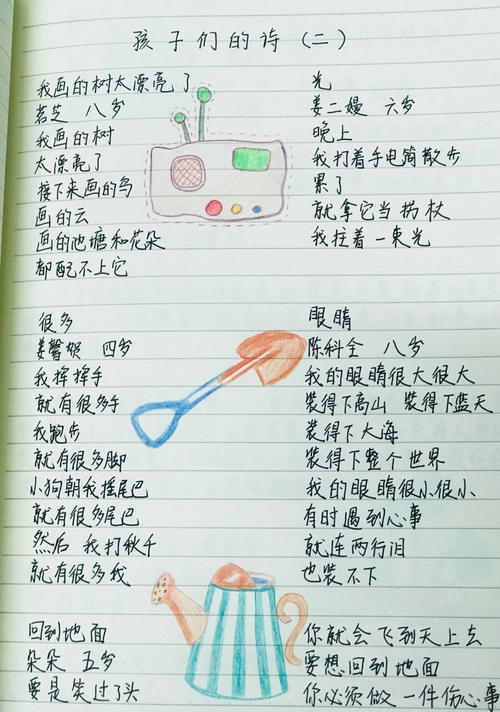 孩子们的诗（二）
我画的树太漂亮了
茗芝 八岁
我画的树
太漂亮了
接下来画的鸟
画的云
画的池塘和花朵
都配不上它
光
姜二嫚 六岁
晚上
我打着手电筒散步
累了
就拿它当拐杖
我拄着一束光
很多
姜馨贺 四岁
我挥挥手
就有很多手
我跑步
就有很多脚
小狗朝我摇尾巴
就有很多尾巴
然后 我打秋千
就有很多我
眼睛
陈科全 八岁
我的眼睛很大很大
装得下高山 装得下蓝天
装得下大海
装得下整个世界
我的眼睛很小很小
有时遇到心事
就连两行泪
也装不下
回到地面
朵朵 五岁
要是笑过了头
你就会飞到天上去
要想回到地面
你必须做一件伤心事